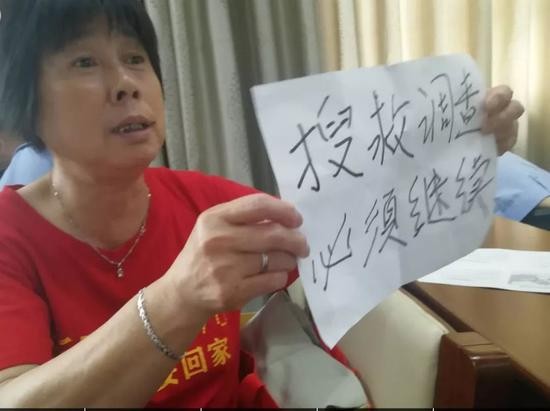 搜救调查
必须继续
要回家